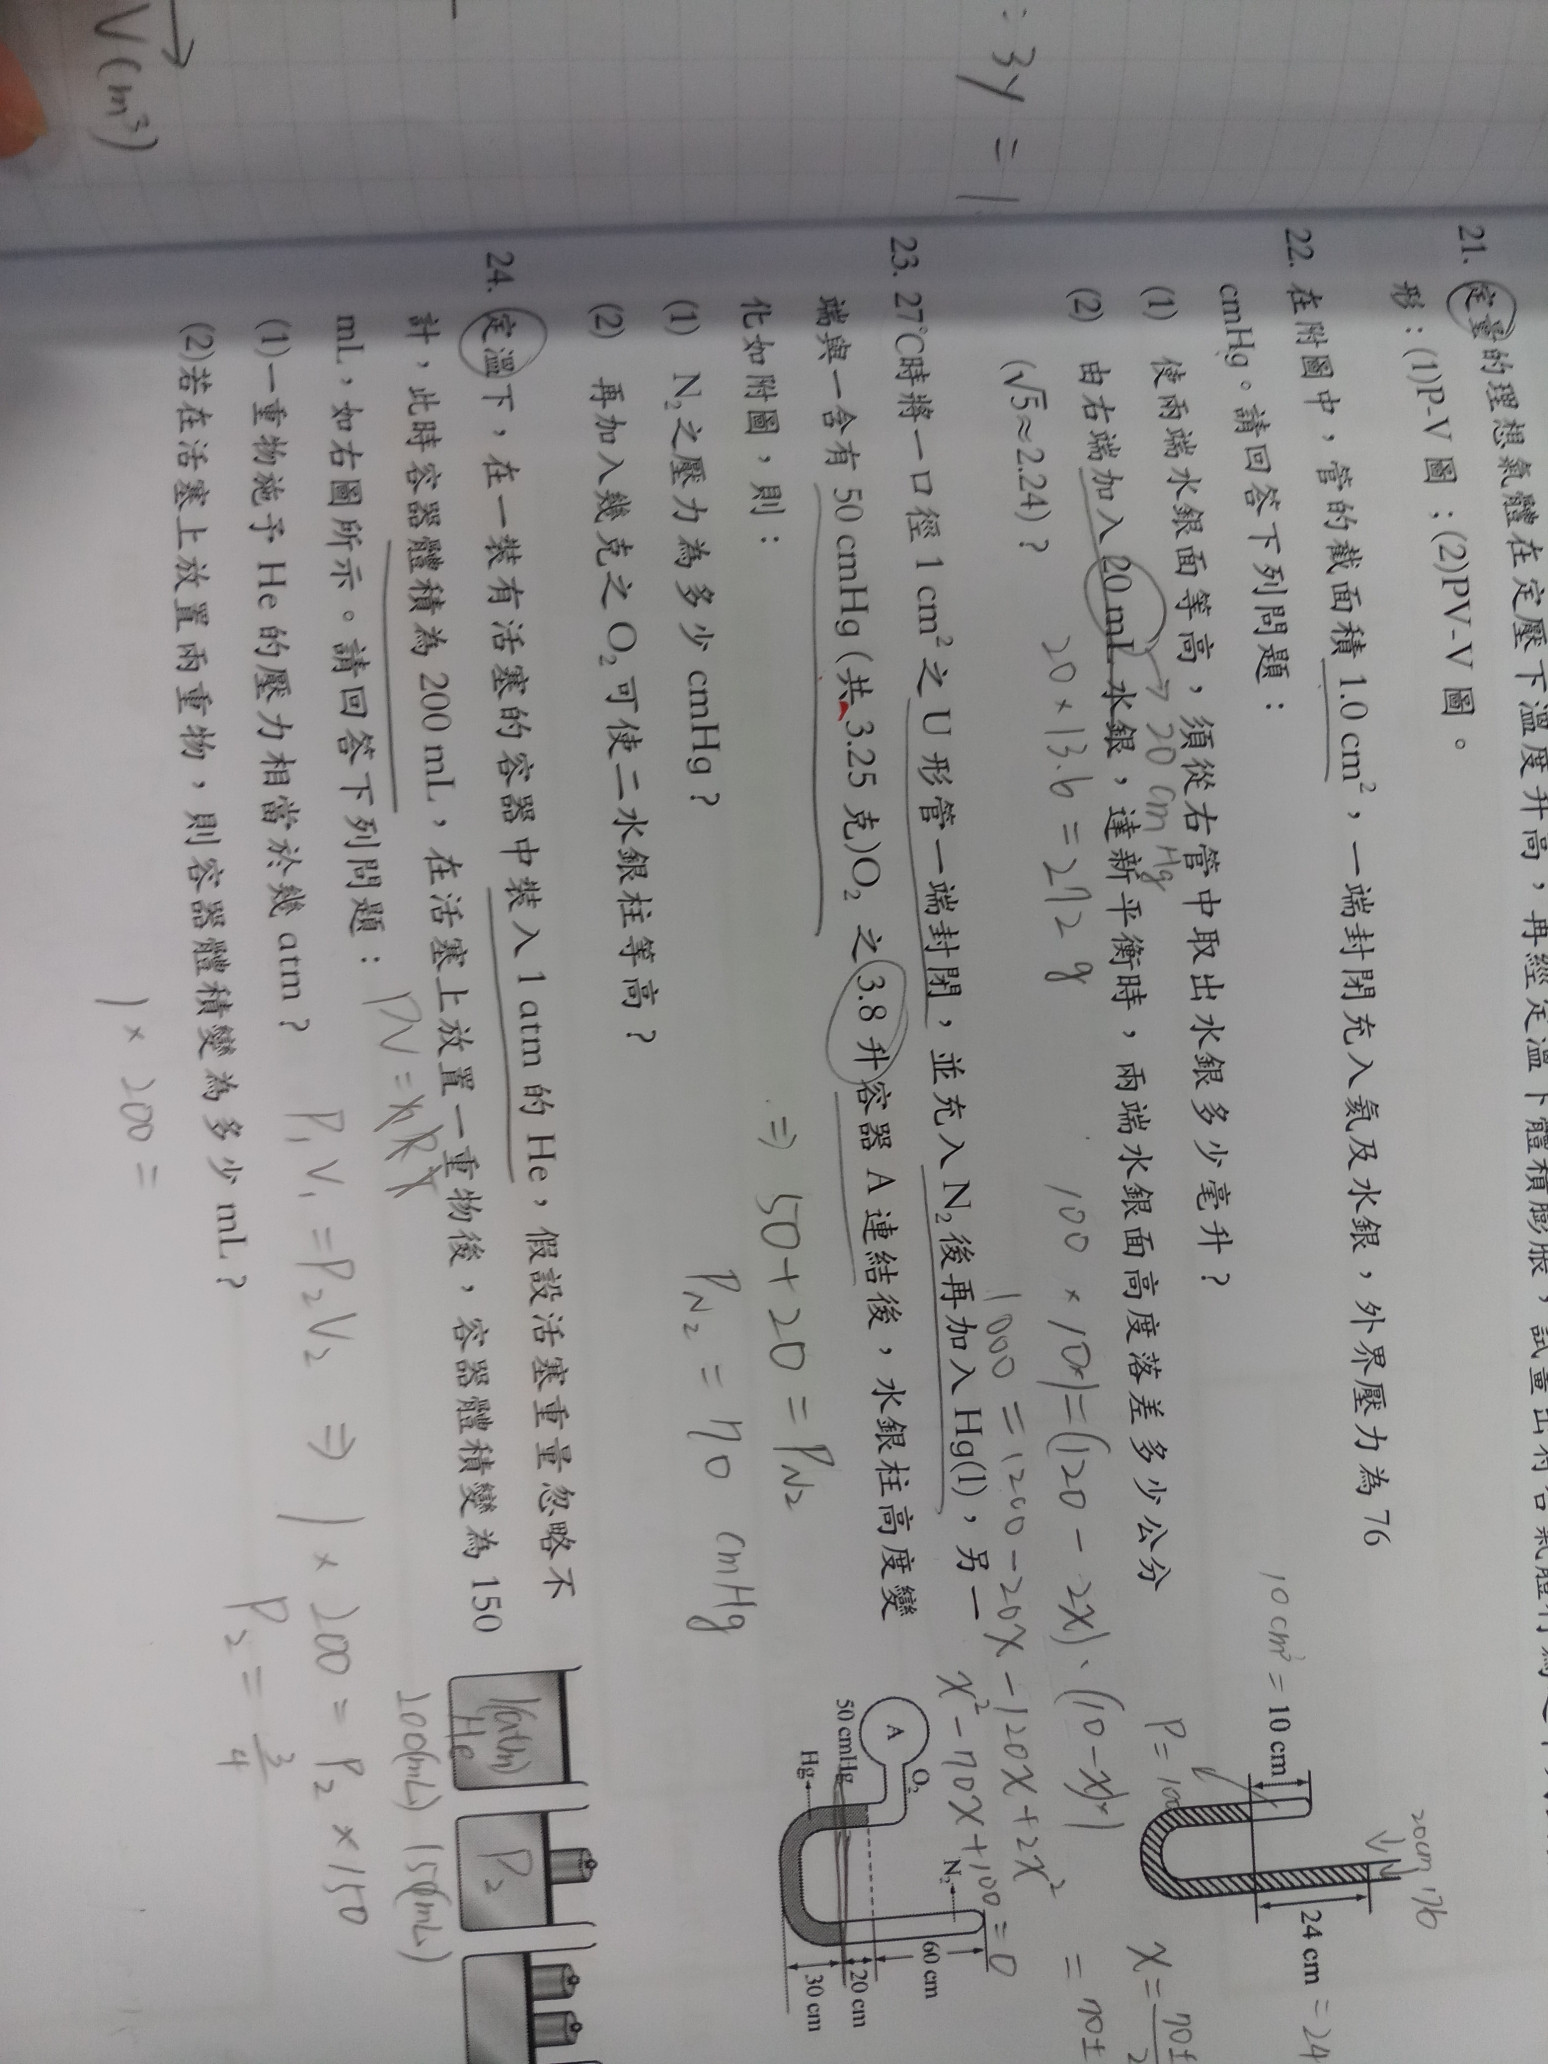 V(cm³)
: 3y = 1
21. 定量的理想氣體在定壓下溫度升高，再經定溫下體積膨脹，試畫出符合氣體行為之
形：(1)P-V 圖；(2)PV-V 圖。
22. 在附圖中，管的截面積 1.0 cm²，一端封閉充入氦及水銀，外界壓力為 76
cmHg。請回答下列問題：
(1) 使兩端水銀面等高，須從右管中取出水銀多少毫升？
→ 20 cmHg
(2) 由右端加入 20 mL 水銀，達新平衡時，兩端水銀面高度落差多少公分
(√5≈2.24)？
20 × 13.6 = 272 g
100 × 10×1 = (120 - 2x)·(10-x)×1
1000 = 1200 - 20x - 120x + 2x²
x² - 70x + 100 = 0
x = 70±
= 70±
10 cm³ = 10 cm
P = 100
20cm
76
24 cm = 24
23. 27℃時將一口徑 1 cm² 之 U 形管一端封閉，並充入 N₂ 後再加入 Hg(l)，另一
端與一含有 50 cmHg (共 3.25 克)O₂ 之 3.8 升容器 A 連結後，水銀柱高度變
化如附圖，則：
⇒ 50 + 20 = P_N₂
(1) N₂ 之壓力為多少 cmHg？
P_N₂ = 70 cmHg
(2) 再加入幾克之 O₂ 可使二水銀柱等高？
A
O₂
50 cmHg
Hg
N₂
60 cm
20 cm
30 cm
24. 定溫下，在一裝有活塞的容器中裝入 1 atm 的 He，假設活塞重量忽略不
計，此時容器體積為 200 mL，在活塞上放置一重物後，容器體積變為 150
mL，如右圖所示。請回答下列問題：
PV = nRT
(1)一重物施予 He 的壓力相當於幾 atm？
P₁V₁ = P₂V₂ ⇒ 1 × 200 = P₂ × 150
P₂ = 3/4
(2)若在活塞上放置兩重物，則容器體積變為多少 mL？
1 × 200 =
1(atm)
He
P₂
200(mL)
150(mL)